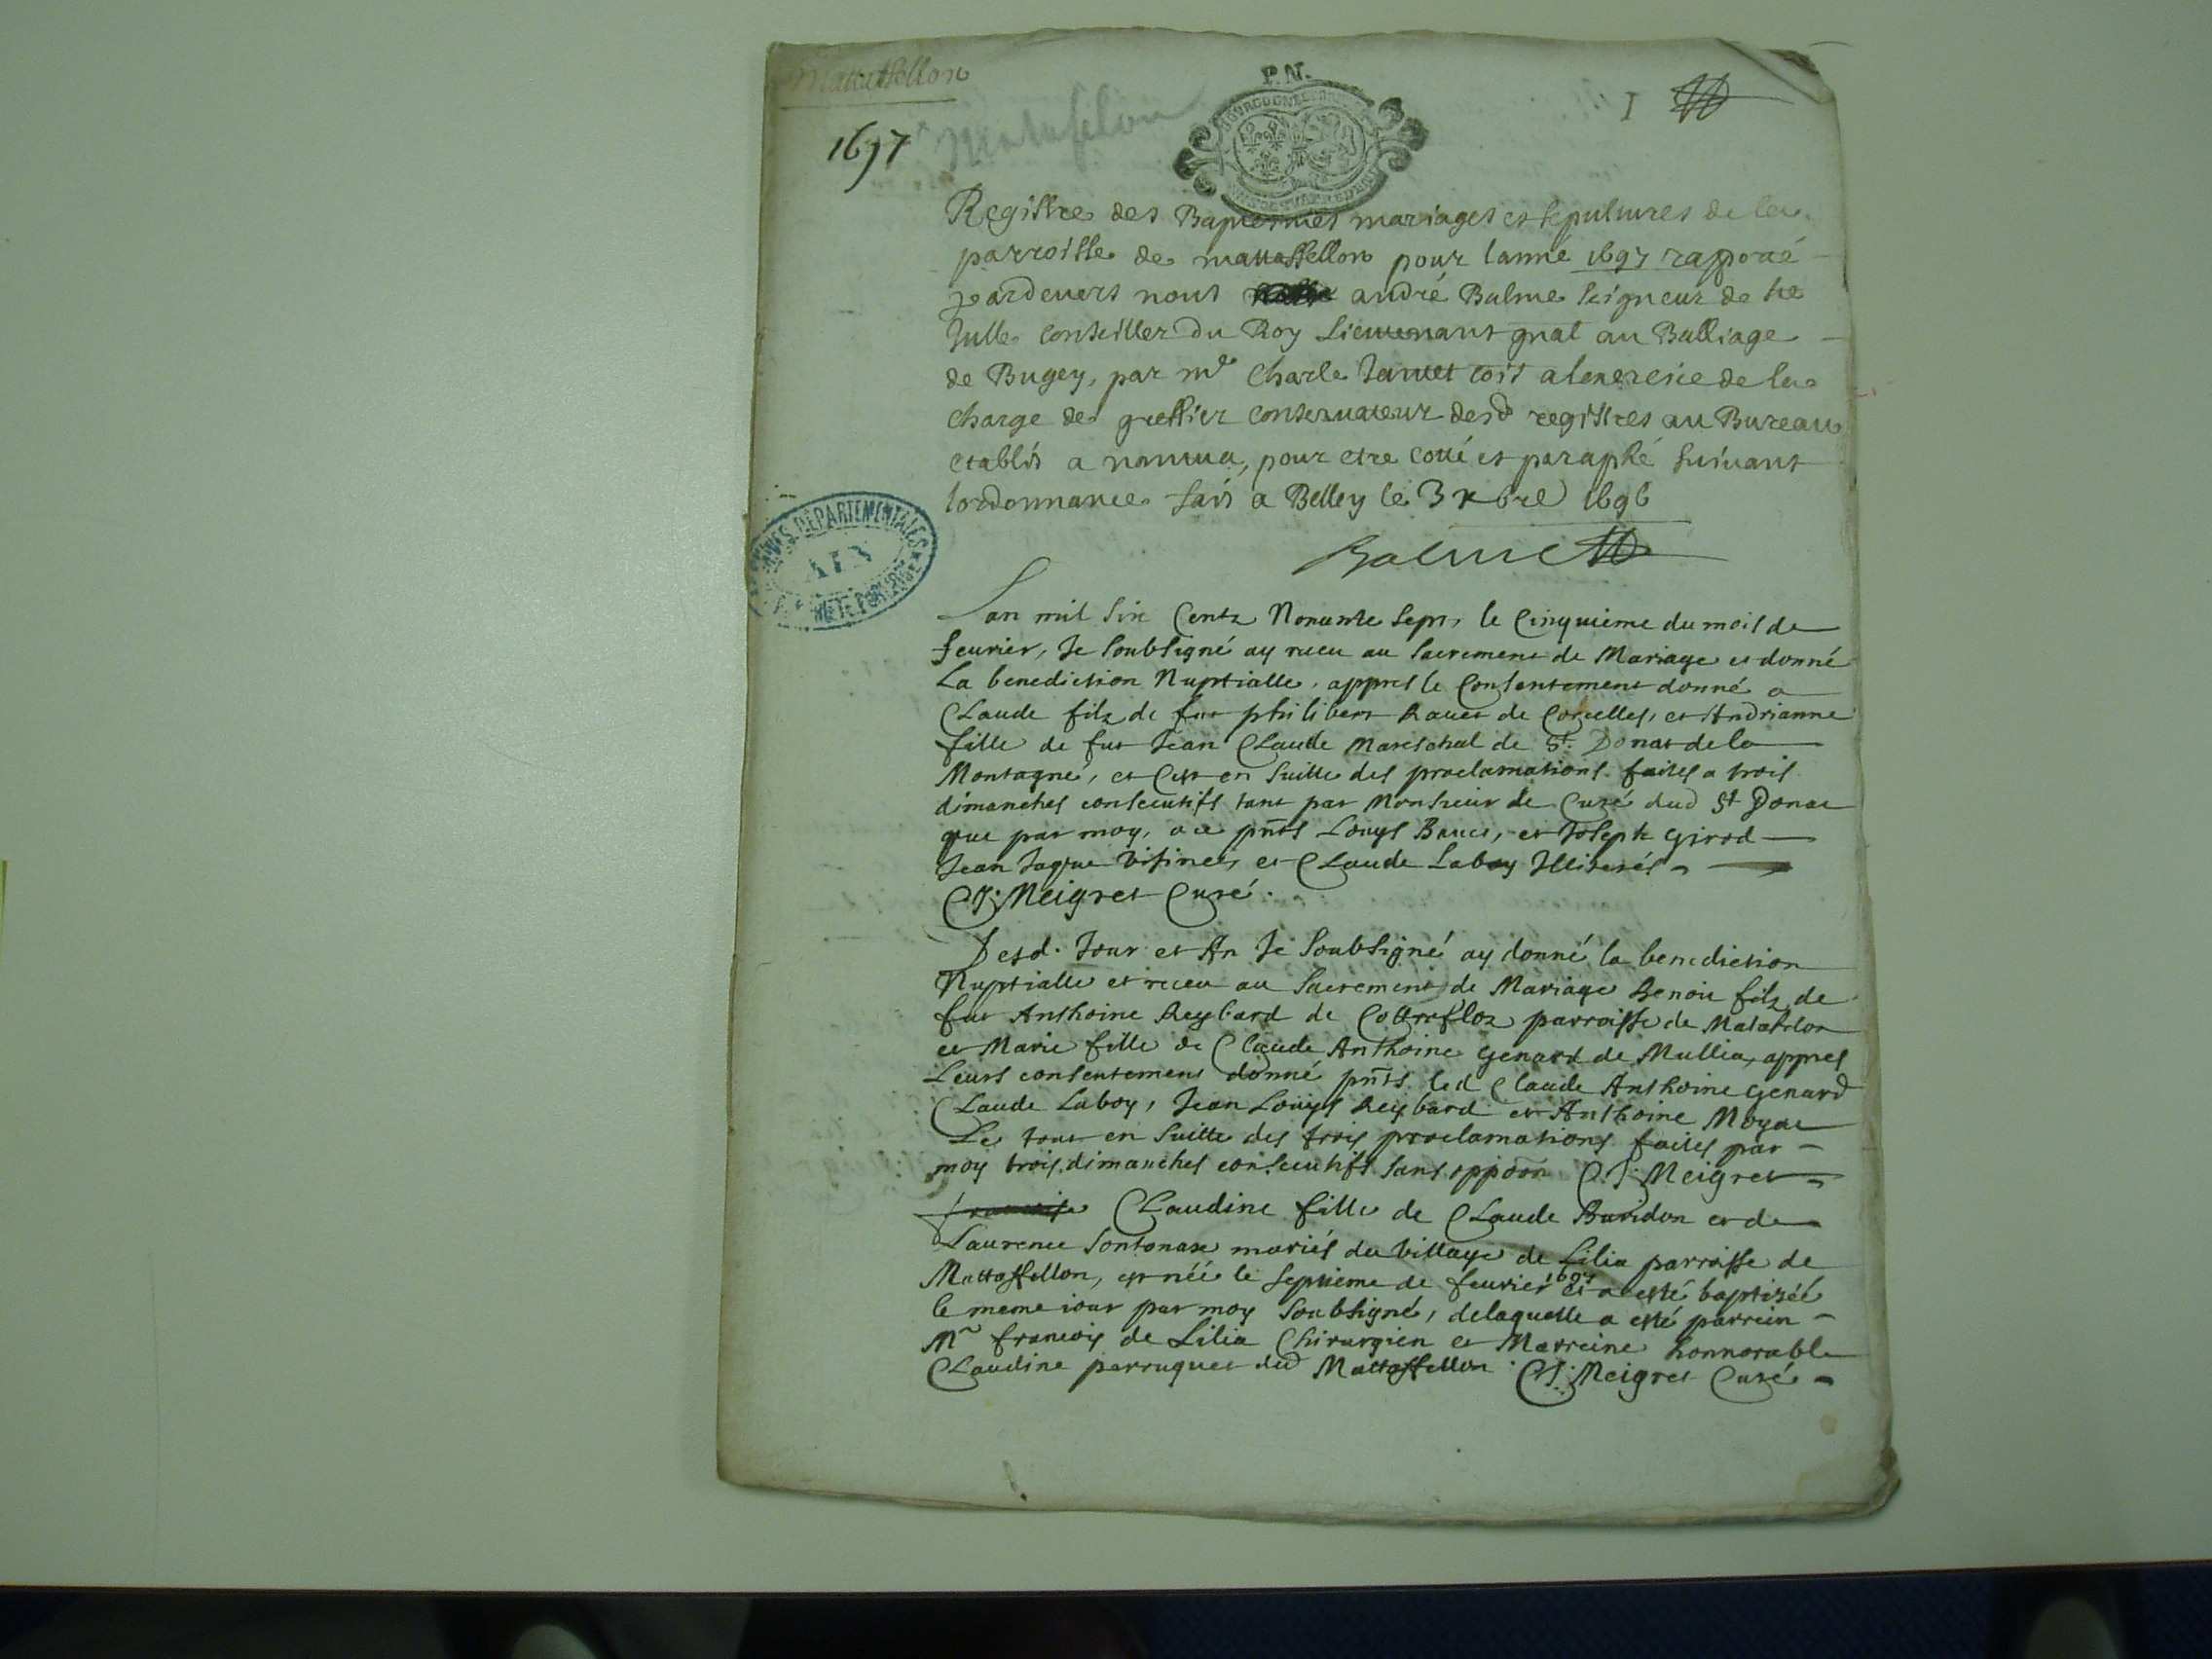 Mattaffellon
1697 Matafelon
P.N.
I
Registre des Baptesmes mariages et sepultures de la
parroisse de mattaffellon pour lanné 1697 rapporté
pardevers nous andré Balme seigneur de ste
Julle conseiller du Roy Lieutenant gnal au Balliage
de Bugey, par mr Charle Janet cois a lexercice de la
charge de greffier conservateur desd registres au Bureau
etablis a nantua, pour etre cotté et paraphé suivant
lordonnance fait a Belley le 3 xbre 1696
Balme
ARCHIVES DÉPARTEMENTALES
AIN
Lan mil six Centz Nonante sept, le Cinquieme du mois de
fevrier, Je soubsigné ay receu au sacrement de Mariage et donné
La benediction Nuptialle, appres le Consentement donné a
Claude filz de fut philibert Ravet de Corcelles, et Andrianne
fille de fut Jean Claude Mareschal de St. Donat de la
Montagne, et Cest en suitte des proclamations faites a trois
dimanches consecutifs tant par Monsieur le Curé dud St Donat
que par moy, a ce pnts Louys Bauer, et Joseph Girod
Jean Jaque Visinet, et Claude Laboy Illiterés
C. J. Meigret Curé.
Desd. Jour et An Je soubsigné ay donné la benediction
Nuptialle et receu au Sacrement de Mariage Benoit filz de
fut Anthoine Reybard de Cottrefloz parroisse de Matafelon
et Marie fille de Claude Anthoine Genard de Mullia, appres
Leurs consentement donné pnts led Claude Anthoine Genard
Claude Laboy, Jean Louys Reybard et Anthoine Moyat
Le tout en suitte des trois proclamations faites par
moy trois dimanches consecutifs sans oppoon C. J. Meigret
francoise Claudine fille de Claude Buridon et de
Laurence Sontonax mariés du Village de Lilia parroisse de
Mattaffellon, est née le septieme de fevrier 1697 et a esté baptizéé
le meme iour par moy Soubsigné, delaquelle a esté parrein
Mr francois de Lilia Chirurgien et Marreine honnorable
Claudine perruquet dud Mattaffellon. C. J. Meigret Curé